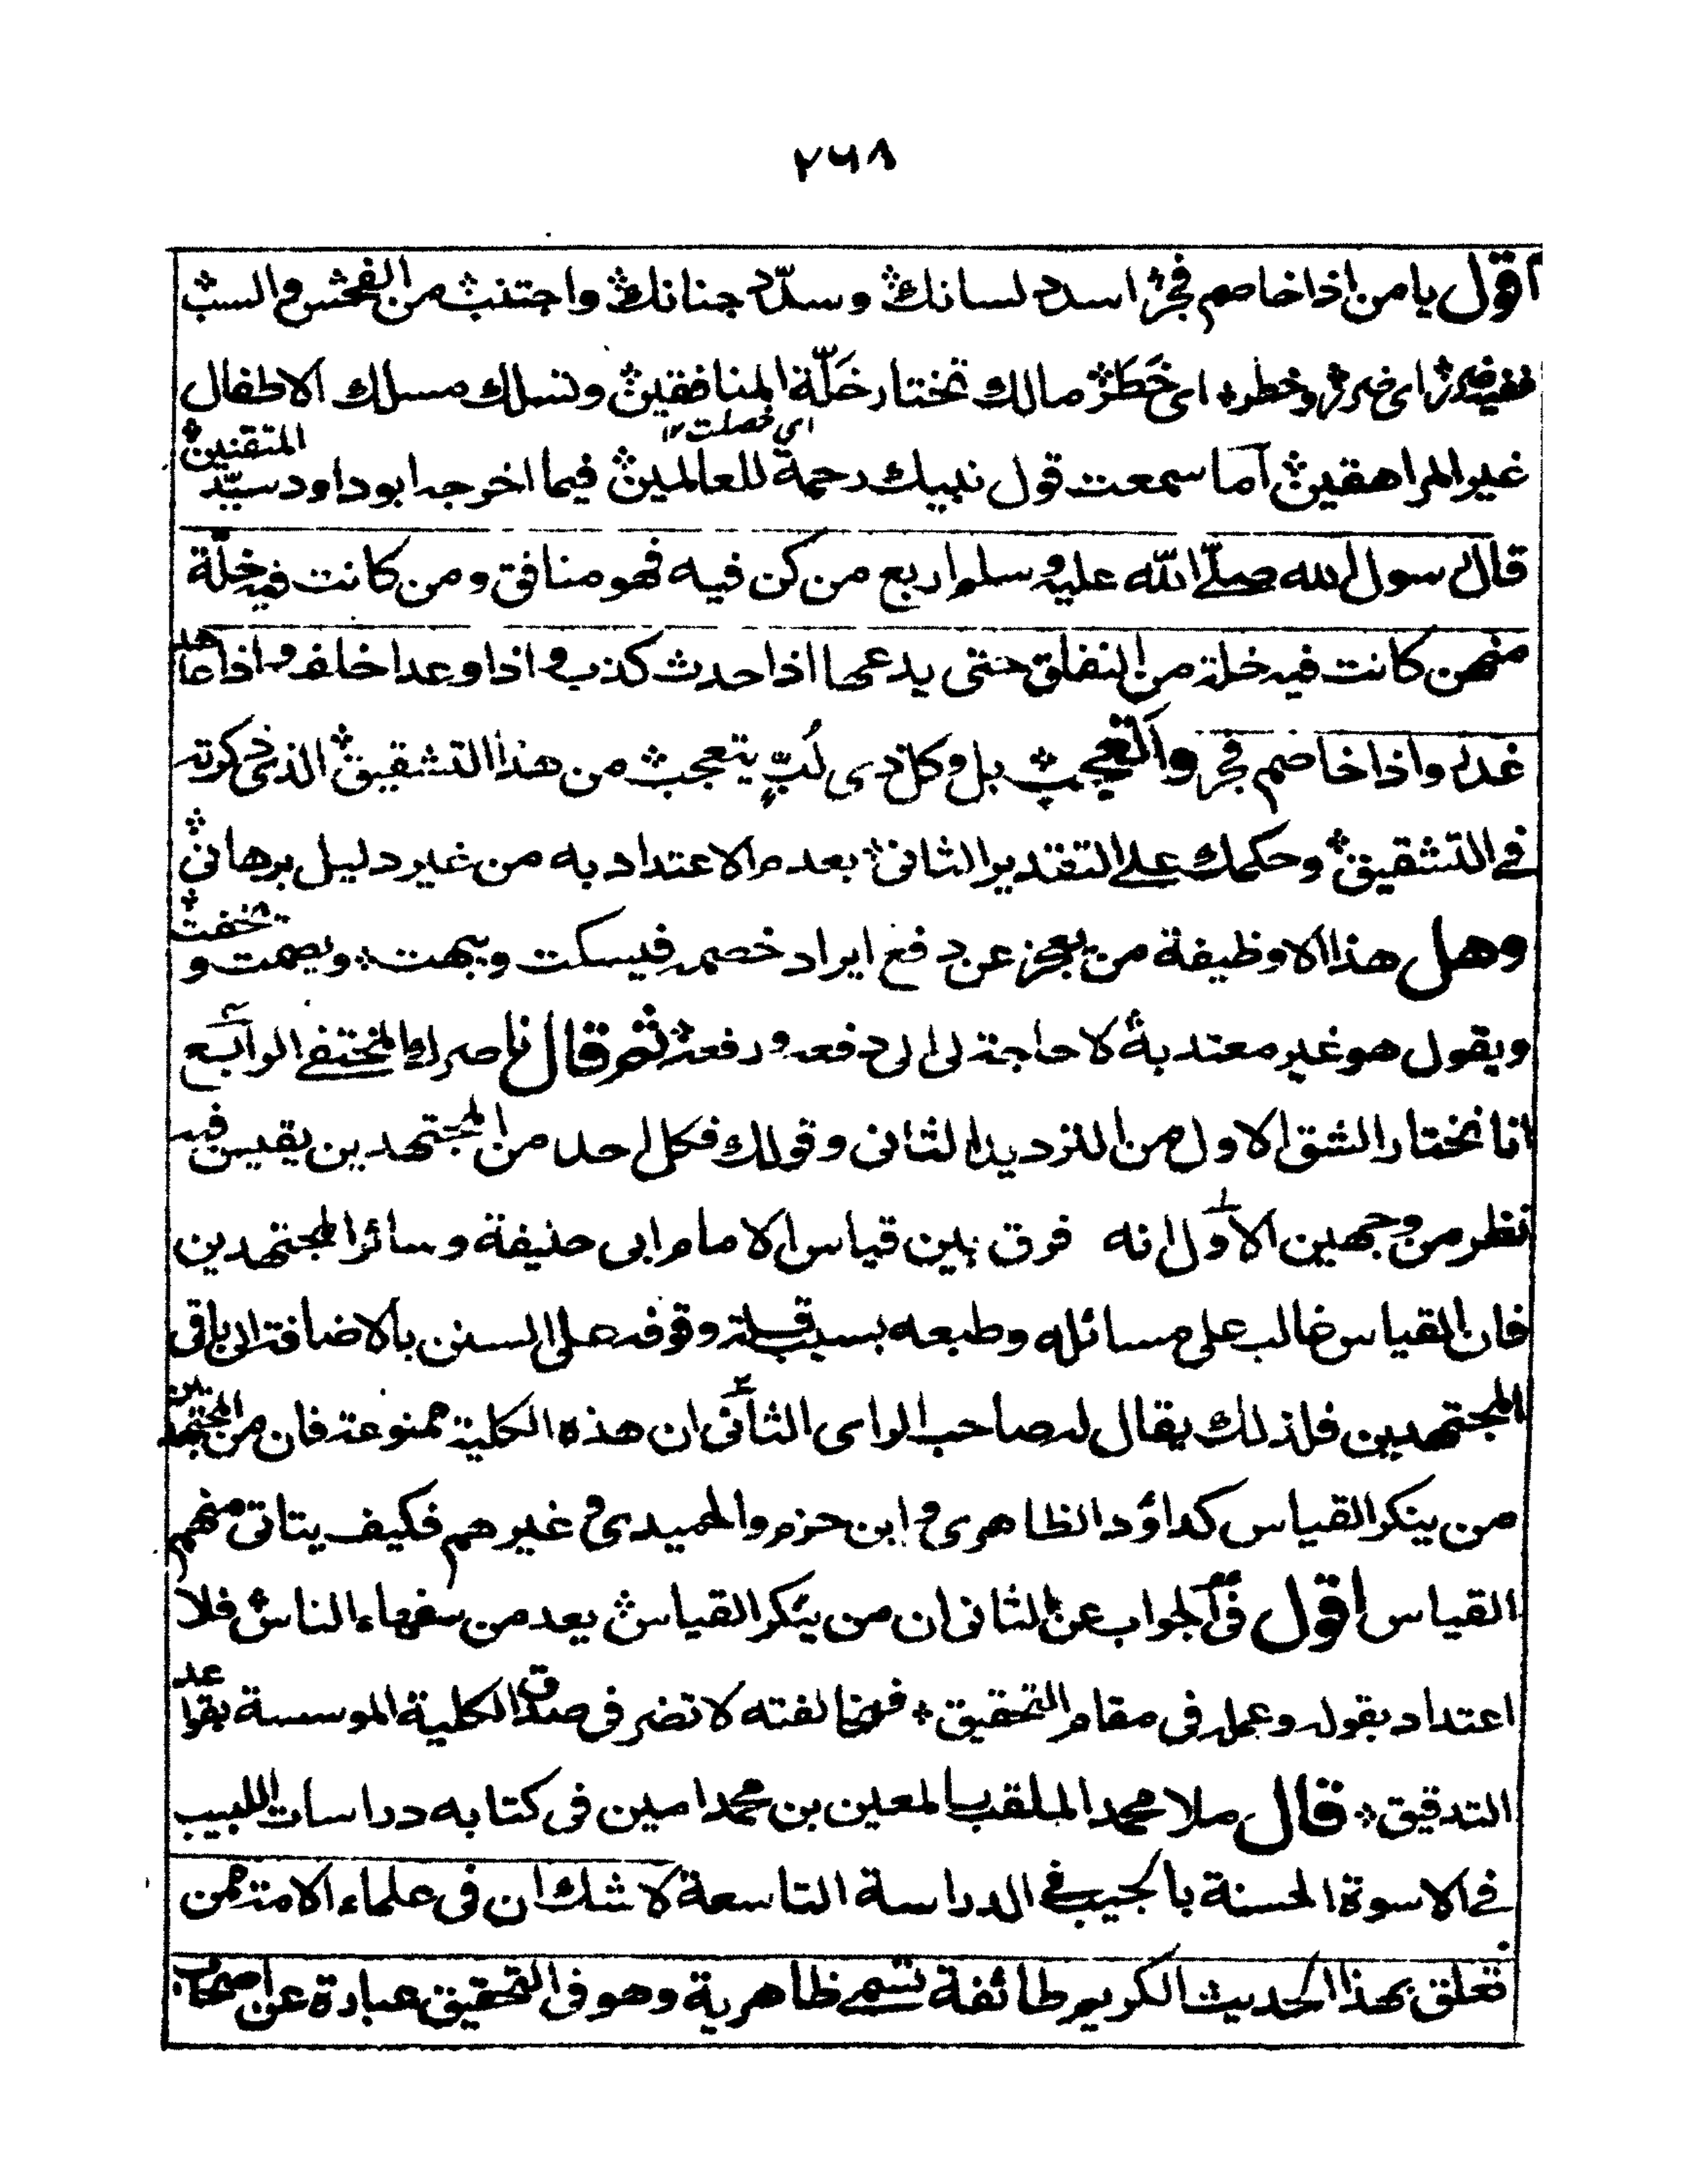 ٢٦٨
اقول يا من اذا خاصم فجر اسدد لسانك وسدّد جنانك واجتنب من الفحش والسب
ففيه ضرر اى ضرر وخطر اى خَطَر مالك تختار خَلّة المنافقين وتسلك مسلك الاطفال
اى خصلت ١٢
غير المراهقين آما سمعت قول نبيك رحمة للعالمين فيما اخرجه ابو داود سيّد المتقنين
قال رسول الله صلّى الله عليه وسلم اربع من كن فيه فهو منافق ومن كانت فيه خلّة
منهن كانت فيه خلة من النفاق حتى يدعها اذا حدث كذب و اذا وعد اخلف و اذا عاهد
غدر واذا خاصم فجر والتعجب بل وكل ذى لُبّ يتعجب من هذا التشقيق الذى ذكرته
فى التشقيق وحكمك على التقدير الثانى بعدم الاعتداد به من غير دليل برهانى
وهل هذا الا وظيفة من يعجز عن دفع ايراد خصمه فيسكت ويبهت ويصمت و تخفت
ويقول هو غير معتد به لا حاجة لى الى دفعه ورفعه ثم قال ناصرك المختفى الرابع
انا نختار الشق الاول من الترديد الثانى وقولك فكل احد من المجتهدين يقيس فيه
نظر من وجهين الاول انه فرق بين قياس الامام ابى حنيفة وسائر المجتهدين
فان القياس غالب على مسائله وطبعه بسبب قلة وقوفه على السنن بالاضافة الى باقى
المجتهدين فلذلك يقال له صاحب الراى الثانى ان هذه الكلية ممنوعة فان من المجتهدين
من ينكر القياس كداؤد الظاهرى و ابن حزم والحميدى و غيرهم فكيف يتاتى منهم
القياس اقول فى الجواب عن الثانى ان من ينكر القياس يعد من سفهاء الناس فلا
اعتداد بقوله وعمله فى مقام التحقيق فمخالفته لا تضر فى صدق الكلية الموسسة بقواعد
التدقيق قال ملا محمد الملقب بالمعين بن محمد امين فى كتابه دراسات اللبيب
فى الاسوة الحسنة بالحبيب فى الدراسة التاسعة لا شك ان فى علماء الامة ممن
تعلق بهذا الحديث الكريم طائفة تسمى ظاهرية وهو فى التحقيق عبارة عن اصحاب